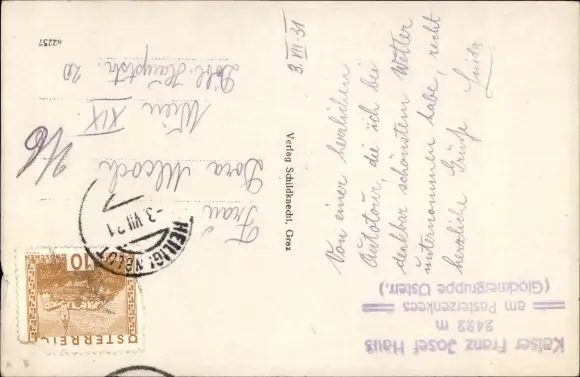 3. VII. 31
Von einer herrlichen
Autotour, die ich bei
denkbar schönstem Wetter
unternommen habe, recht
herzliche Grüße.
Kaiser Franz Josef Haus
2422 m
am Pasterzenkees
(Glocknergruppe Österr.)
Verlag Schildknecht, Graz
Frau
Dora
Wien XIX
Döbl. Hauptstr. 20
62257
10
GROSCHEN
ÖSTERREICH
-3.VII 31